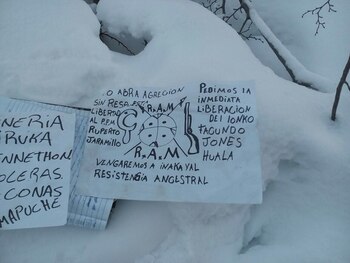 NERIA
IRUKA
ENNETHON
OCERAS
CONAS
MAPUCHE
O ABRA AGRECION
SIN RESP
LIBERTAD
AL P.P.M
RUPERTO
JARAMILLO
R.A.M
R.A.M
PEDIMOS LA
INMEDIATA
LIBERACION
DEL LONKO
FACUNDO
JONES
HUALA
VENGAREMOS A INAKAYAL
RESISTENCIA ANCLSTRAL